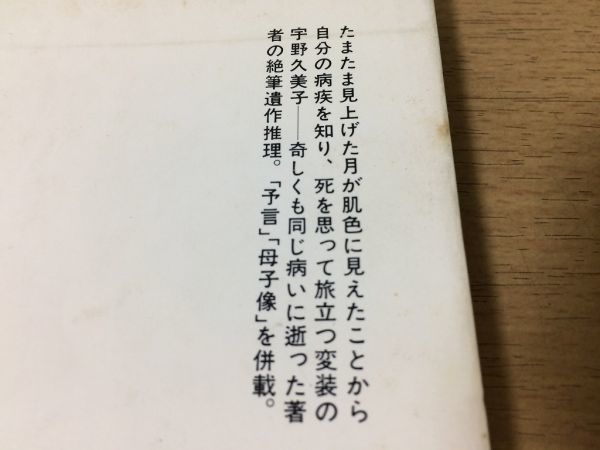 たまたま見上げた月が肌色に見えたことから
自分の病疾を知り、死を思って旅立つ変装の
宇野久美子――奇しくも同じ病いに逝った著
者の絶筆遺作推理。「予言」「母子像」を併載。